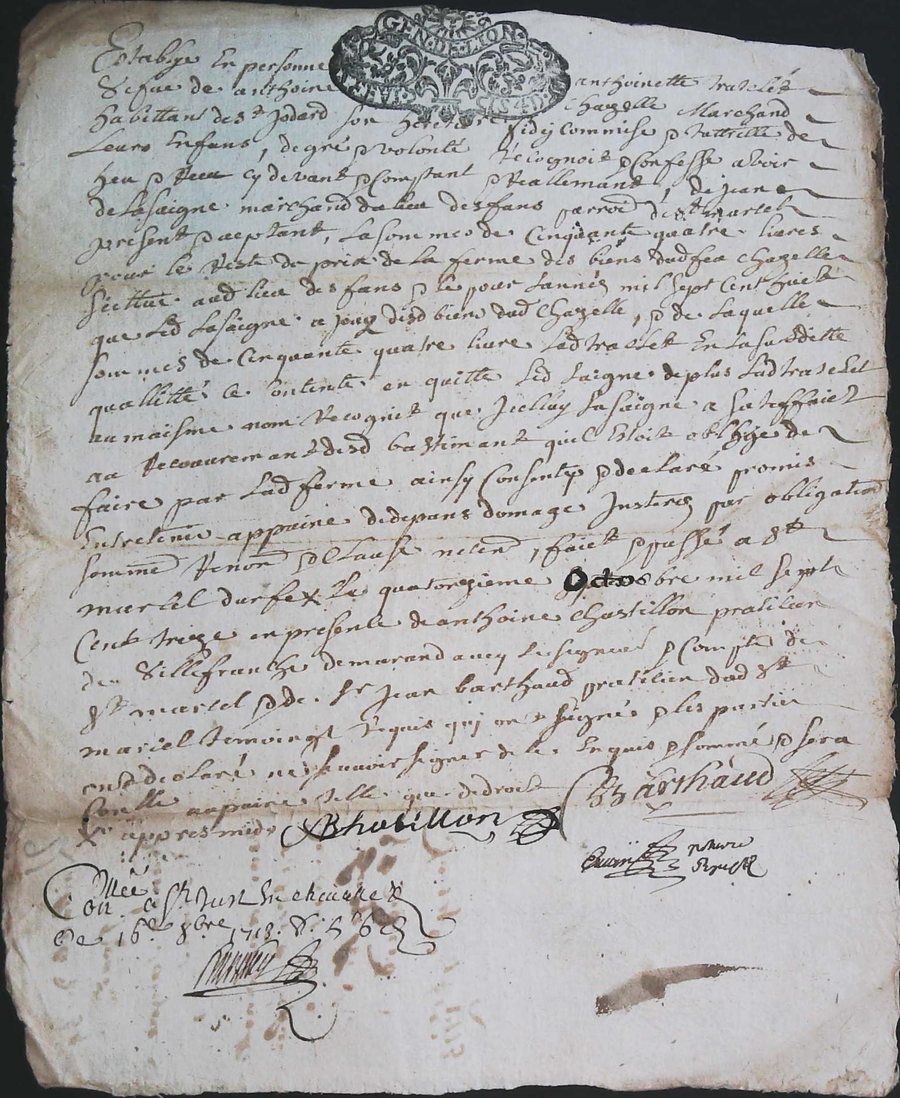 GEN · DE · LION
Establye En personne anthoinette tratelet
vefve de anthoine chazelle Marchand
habittans de st Jodard son heretier fideycommise & tuttrille de
Leurs Enfans, de gré & volonté Recognoit & Confesse avoir
heu & Receu cy devant & Comptant & Reallemant, de jean
de Lasaigne marchand du lieu des fans parroi de st marcel
present & aceptant, La somme de Cinquante quatre livres
pour le Reste du prix de la ferme des biens dud feu chazelle
sicttue aud lieu des fans & le pour Lannée mil sept Cent huict
que Led Lasaigne a jouy desd bien dud Chazelle, & de Laquelle
sommes de Cinquante quatre livre Lad tratelet En La susditte
quallitté ce Contente en quitte Led Laigne de plus Lad tratelet
au maisme nom Recognit que Lasaigne a sateffaict
au Recouvremant desd bastimant quil Estoit oblige de
faire par Lad ferme ainsy Consenty & declaré promis
Entretenir appaine de depans domage Jnsterés par obligation
sommé Renon & Clause necend, faict & passé a st
marcel durfé X le quatorezieme Octobre mil sept
Cent treize en presente de anthoine Chastillon pratitien
de Villefranche demurand avecq le segneur & Compte de
st marcel & de sr jean barthaud pratitien dud st
marcel temoingt Requis qui on segnés & les partie
ont declaré ne scavoir signer de le Enquis & sommé & sera
Conelle appaine telle que de droit
X appres midy Chatillon Barthaud
notaire
Royal
Con llé a St Just En chevallet
Ce 16e 8bre 1713